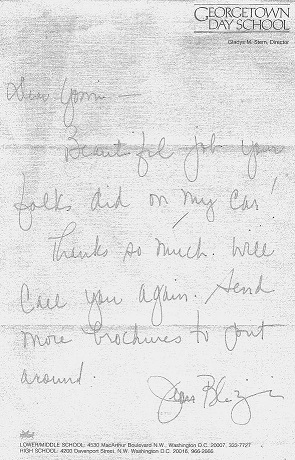 GEORGETOWN
DAY SCHOOL
Gladys M. Stern, Director
Dear
Beautiful job your
folks did on my car!
Thanks so much. Will
call you again. Send
more brochures to put
around.
LOWER/MIDDLE SCHOOL: 4530 MacArthur Boulevard N.W., Washington D.C. 20007 333-7727
HIGH SCHOOL: 4200 Davenport Street, N.W. Washington D.C. 20016 966-2666